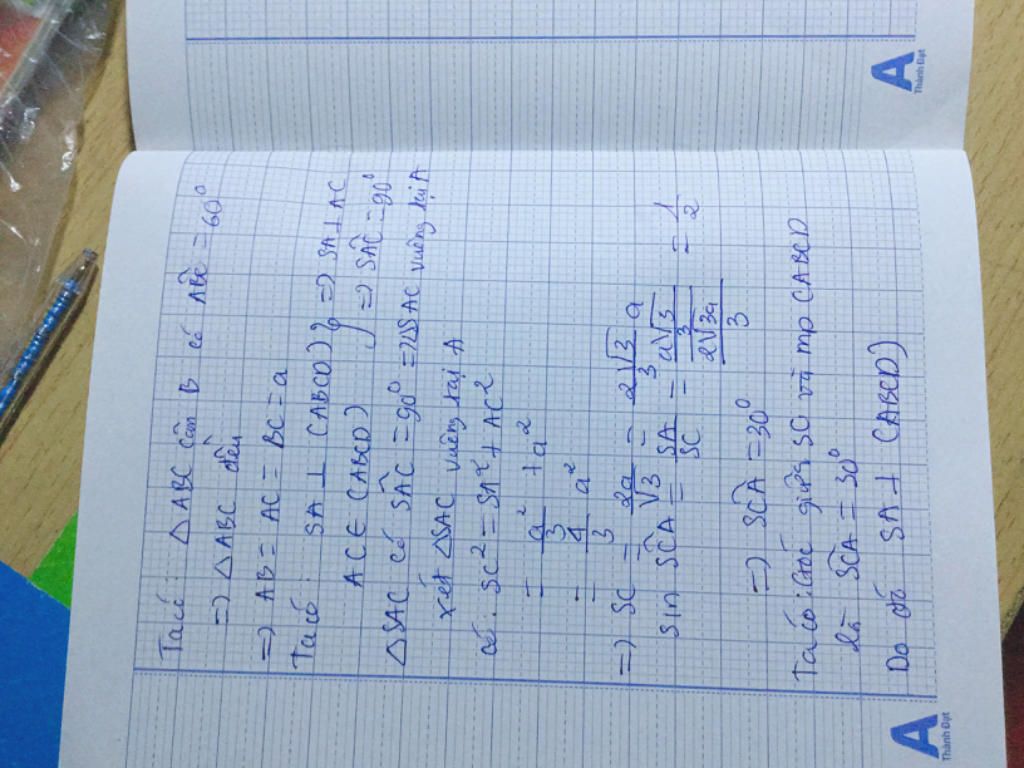 Ta có: △ABC cân B có ABC̑ = 60°
=> △ABC đều
=> AB = AC = BC = a
Ta có: SA ⊥ (ABCD) } => SA ⊥ AC
AC ∈ (ABCD) => SÂC = 90°
△SAC có SÂC = 90° => △SAC vuông tại A
xét △SAC vuông tại A
có: SC² = SA² + AC²
= a²/3 + a²
= 4/3 a²
=> SC = 2a/√3 = 2√3/3 a
sin SĈA = SA/SC = (a√3/3)/(2√3a/3) = 1/2
=> SĈA = 30°
Ta có: Góc giữa SC và mp (ABCD
là SĈA = 30°
Do đó SA ⊥ (ABCD)
A
Thành Đạt
A
Thành Đạt